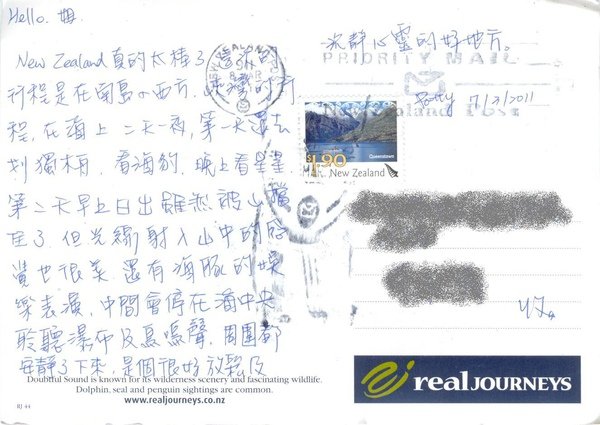 Hello. 姐
New Zealand 真的太棒了
行程是在南島の西方.
程, 在海上 二天一夜, 第一天還去
划獨木舟, 看海豹, 晚上看星星
第二天早上日出雖然被山擋
住了, 但光線射入山中的感
覺也很美. 還有海豚的娛
樂表演, 中間會停在海中央
聆聽瀑布及鳥鳴聲, 周圍都
安靜了下來, 是個很好放鬆及
沉靜心靈的好地方。
7/2/2011
PRIORITY MAIL
New Zealand Post
1.90
Queenstown
New Zealand
Doubtful Sound is known for its wilderness scenery and fascinating wildlife.
Dolphin, seal and penguin sightings are common.
www.realjourneys.co.nz
RJ 44
realJOURNEYS